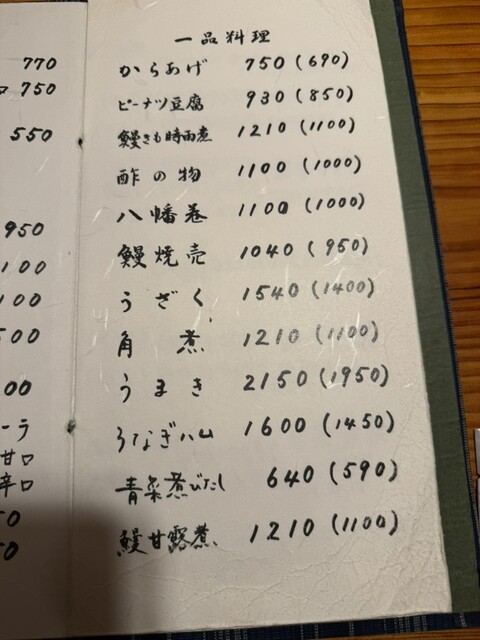 770
750
550
950
100
100
500
00
ーラ
甘口
辛口
50
50
一品料理
からあげ 750 (690)
ピーナツ豆腐 930 (850)
鰻きも時雨煮 1210 (1100)
酢の物 1100 (1000)
八幡巻 1100 (1000)
鰻焼売 1040 (950)
うざく 1540 (1400)
角煮 1210 (1100)
うまき 2150 (1950)
うなぎハム 1600 (1450)
青菜煮びたし 640 (590)
鰻甘露煮 1210 (1100)